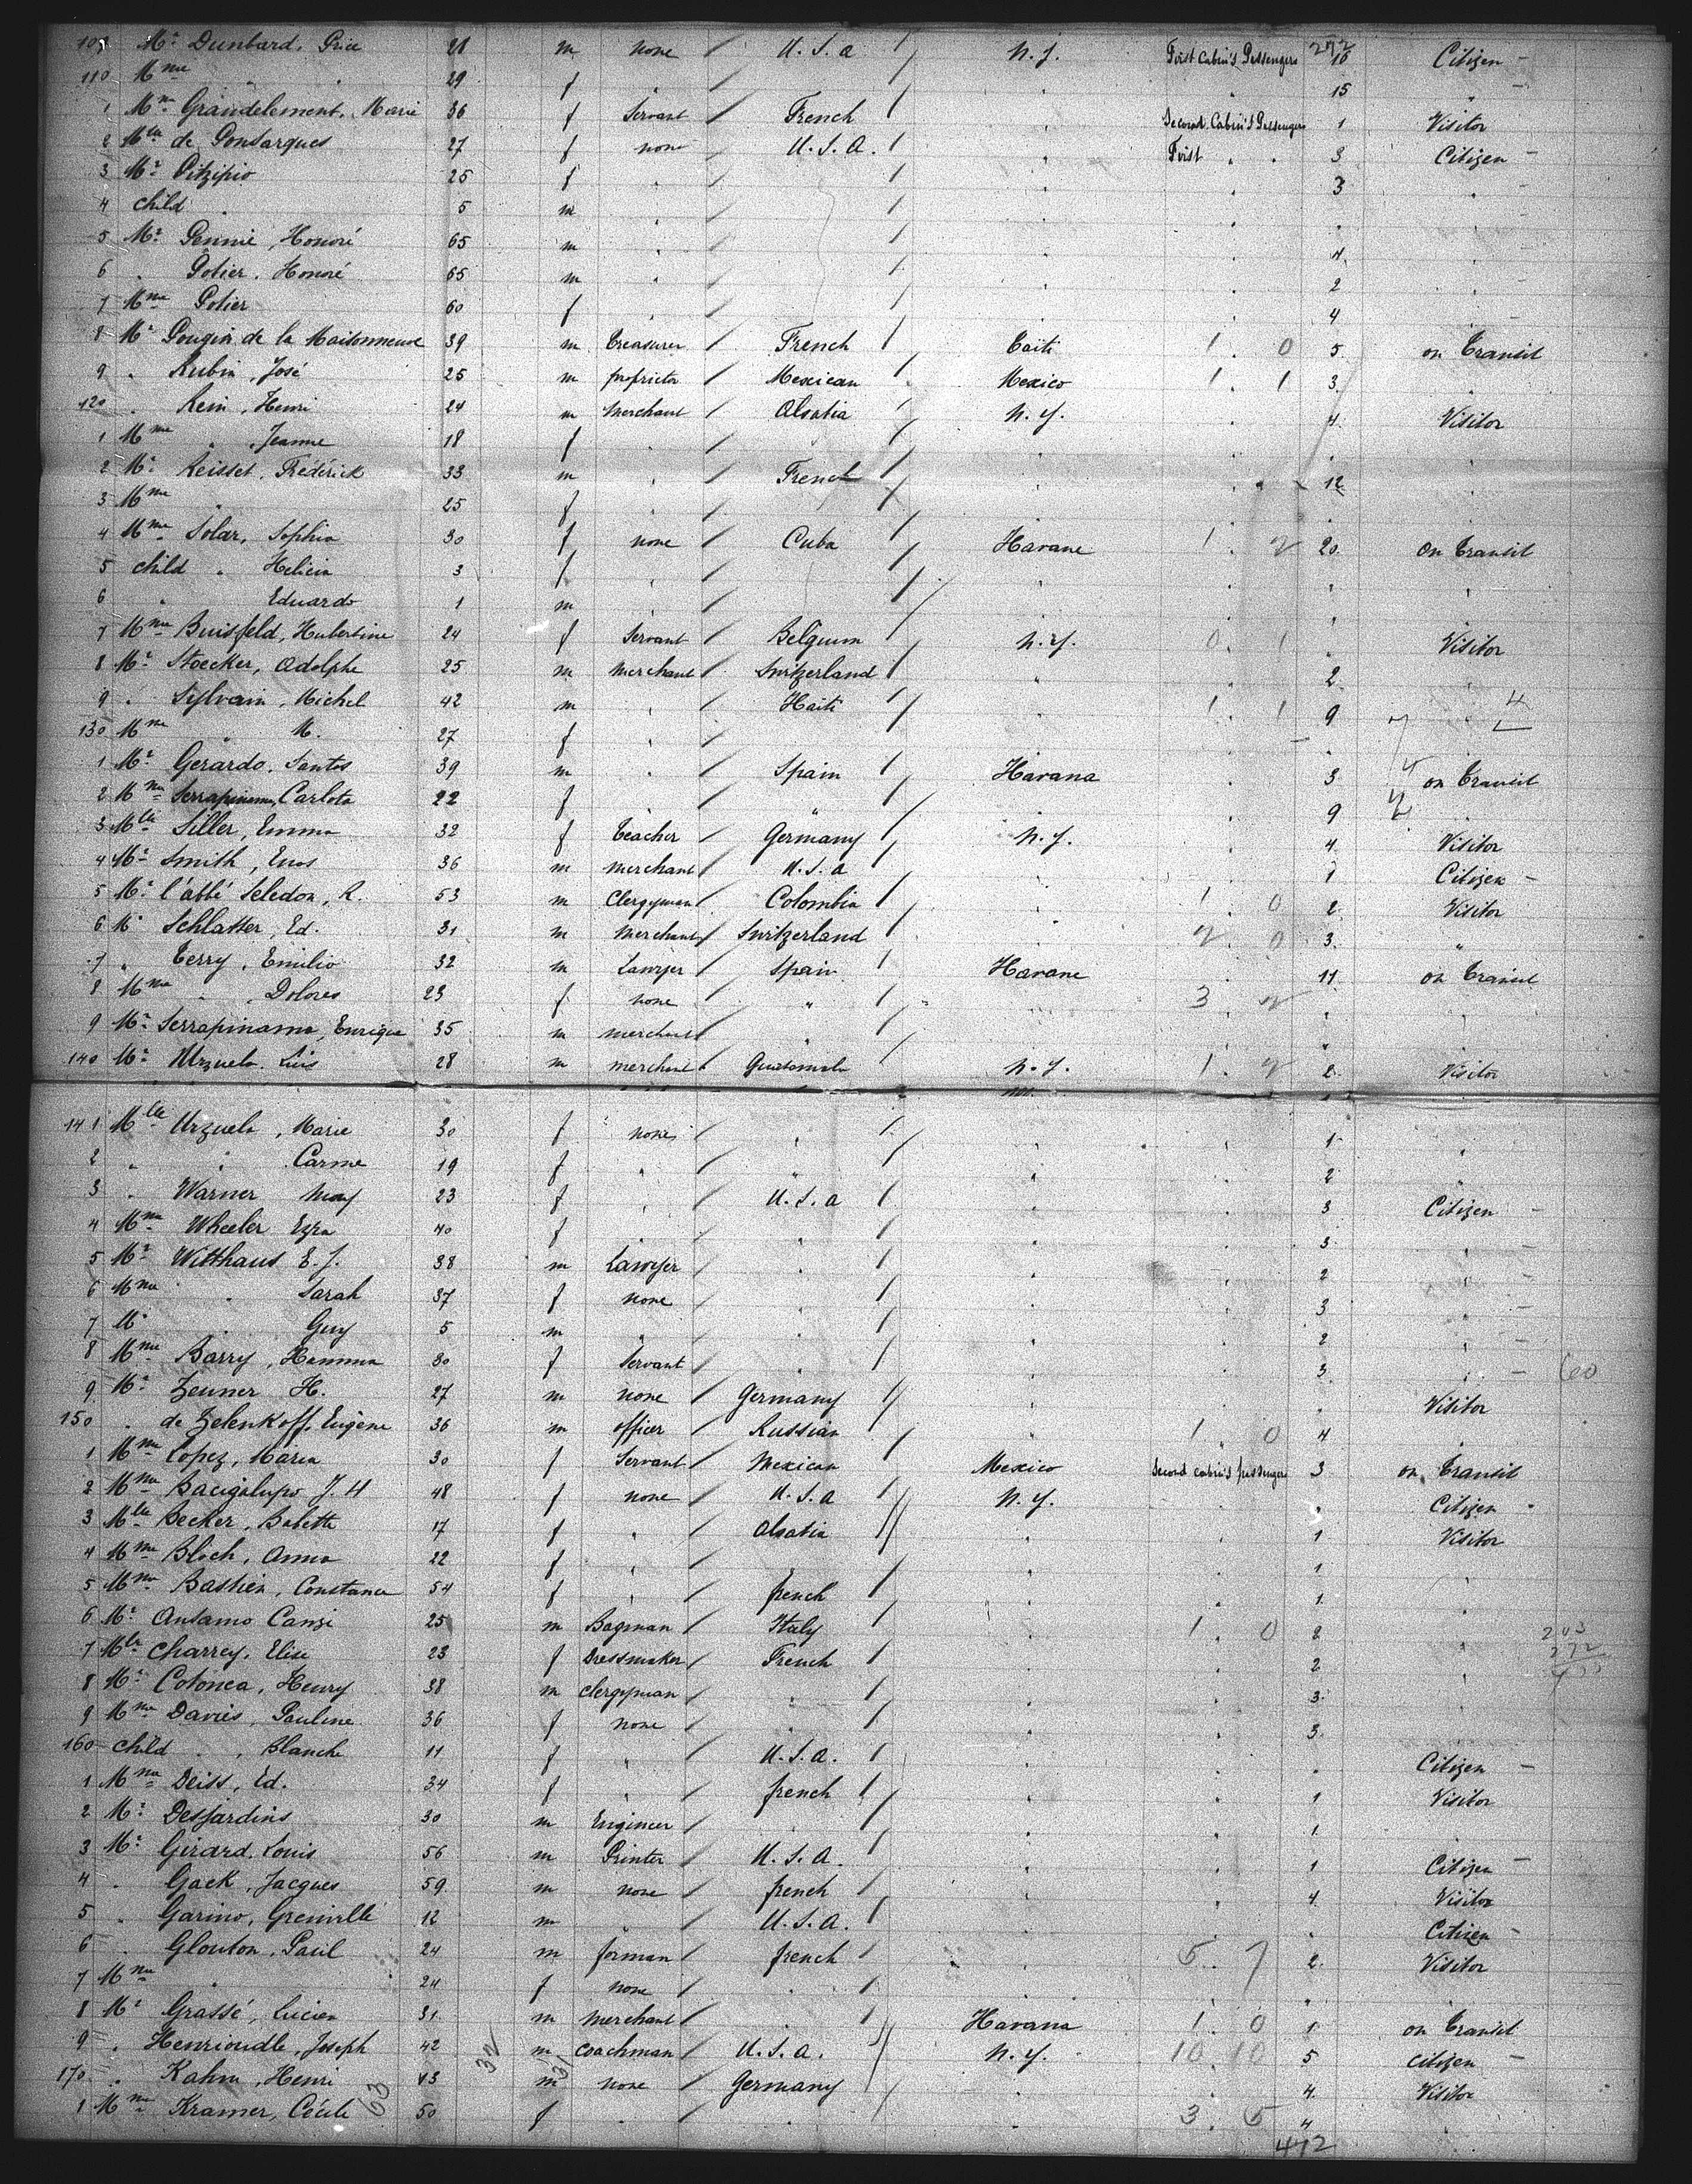 109 Mr Dunbard, Price 28 m none / U.S.a / N.Y. First Cabin's Passengers 272 10 Citizen -
110 Mme " " 29 f " / " / " " 15 " -
1 Mme Grandelement, Marie 36 f Servant / French / " Second Cabin's Passengers 1 Visitor
2 Mlle de Gonsarques 27 f none / U.S.A. / " First " " 3 Citizen -
3 Mr Pitzipio 25 f " / " / " " 3 " -
4 child " 5 m " / " / " " " "
5 Mr Pennie, Honoré 65 m " / " / " " 4 " -
6 " Potier, Honoré 65 m " / " / " " 2 " -
7 Mme Potier 60 f " / " / " " 4 " -
8 Mr Pougin de la Maisonneuve 39 m treasurer / French / Taiti 1 . 0 5 on transit
9 " Rubin, José 25 m proprietor / Mexican " Mexico 1 . 1 3 "
120 " Rein, Henri 24 m merchant / Alsatia / N.Y. " 4 Visitor
1 Mme " Jeanne 18 f " / " / " " " "
2 Mr Reisset, Frédérick 33 m " / French / " " 12 "
3 Mme " 25 f " / " / " " " "
4 Mme Solar, Sophia 30 f none / Cuba / Havane 1 . 2 20 On transit
5 child " Helicia 3 f " / " / " " " "
6 " Eduardo 1 m " / " / " " " "
7 Mme Buisfeld, Hubertine 24 f Servant / Belgium / N.Y. 0 . 1 " Visitor
8 Mr Stoecker, Adolphe 25 m merchant / Switzerland / " " 2 "
9 " Sylvain, Michel 42 m " / Haiti / " 1 . 1 9 " 4
130 Mme " M. 27 f " / " / " " " "
1 Mr Gerardo, Santos 39 m " / Spain / Havana " 3 on transit
2 Mme Serrapinama, Carlota 22 f " / " / " " 9 "
3 Mlle Siller, Emma 32 f teacher / Germany / N.Y. " 4 Visitor
4 Mr Smith, Enos 36 m merchant / U.S.a / " " 1 Citizen -
5 Mr l'abbé Seledon, R. 53 m Clergyman / Colombia / " 1 . 0 2 Visitor
6 Mr Schlatter, Ed. 31 m merchant / Switzerland / " 2 . 0 3 "
7 " Terry, Emilio 32 m Lawyer / Spain / Havane " 11 on transit
8 Mme " Dolores 23 f none / " / " 3 . 2 " "
9 Mr Serrapinama, Enrique 35 m merchant " " " " "
140 Mr Urzuela, Luis 28 m merchant Guatemala N.Y. 1 . 2 2 Visitor
141 Mlle Urzuela, Marie 30 f none / " / " " 1 "
2 " " Carme 19 f " / " / " " 2 "
3 " Warner May 23 f " / U.S.a / " " 3 Citizen -
4 Mme Wheeler Ezra 40 f " / " / " " 3 " -
5 Mr Witthaus E.J. 38 m Lawyer / " / " " 2 " -
6 Mme " Sarah 37 f none / " / " " 3 " -
7 Mr " Guy 5 m " / " / " " 2 " -
8 Mme Barry, Hamma 30 f Servant / " / " " 3 " - 60
9 Mr Zeuner H. 27 m none / Germany / " " " Visitor
150 " de Zelenkoff, Eugène 36 m officer / Russian / " 1 . 0 4 "
1 Mme Lopez, Maria 30 f Servant / Mexican / Mexico Second cabin's passengers 3 on transit
2 Mme Bacigalupo J.H 48 f none / U.S.a / N.Y. " " Citizen -
3 Mlle Becker, Babette 17 f " / Alsatia / " " 1 Visitor
4 Mme Bloch, Anna 22 f " / " / " " 1 "
5 Mme Bastien, Constance 54 f " / french / " " 1 "
6 Mr Ansamo Canzi 25 m Bagman / Italy / " 1 . 0 2 "
7 Mlle Charrey, Elise 23 f Dressmaker / French / " " 2 "
8 Mr Cotonea, Henry 38 m clergyman / " / " " 3 "
9 Mme Davies, Pauline 36 f none / " / " " 3 "
160 child " Blanche 11 f " / U.S.a. / " " " Citizen -
1 Mme Deiss, Ed. 34 f " / french / " " 1 Visitor
2 Mr Desjardins 30 m Engineer / " / " " 1 "
3 Mr Girard, Louis 56 m Printer / U.S.a. / " " 1 Citizen -
4 " Gack, Jacques 59 m none / french / " " 4 Visitor
5 " Garino, Grenville 12 m " / U.S.a. / " " " Citizen -
6 " Glouton, Paul 24 m forman / french / " 5 . 7 2 Visitor
7 Mme " 24 f none / " / " " " "
8 Mr Grassé, Lucien 31 m merchant / " / Havana 1 . 0 1 on transit
9 " Henrioudle, Joseph 42 m coachman / U.S.a. / N.Y. 10 . 10 5 citizen -
170 " Kahn, Henri 43 m none / Germany / " " 4 Visitor
1 Mme Kramer, Cécile 50 f " / " / " 3 . 5 4 "
63 32 31 472